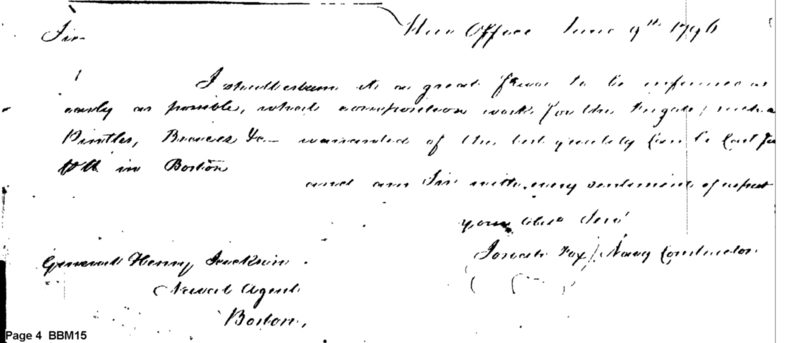 War Office June 9th 1796
Sir
I shall esteem it a great favor to be informed as
early as possible, what composition work for the Frigate, such as
Pintles, Braces &c warranted of the best quality can be cast for
lb in Boston
and am Sir with every sentiment of respect
your Obt Servt
Josiah Fox / Navy Constructor
General Henry Jackson
Naval Agent
Boston,
Page 4 BBM15